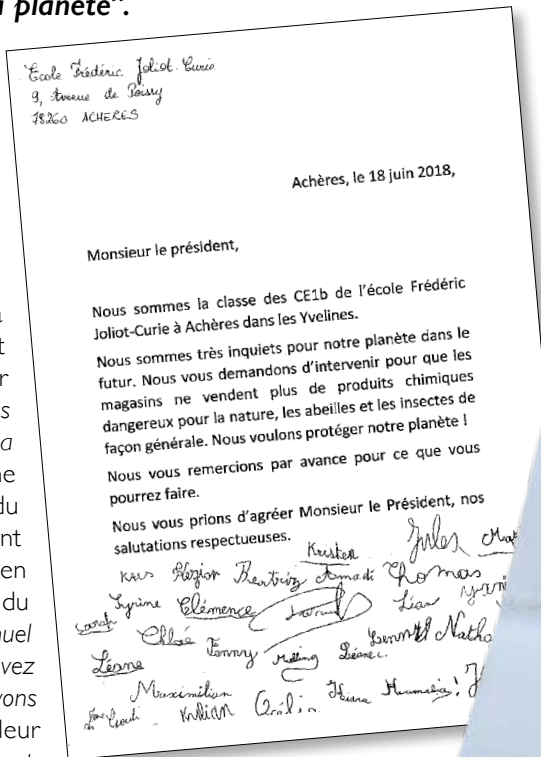 planète".
École Frédéric Joliot-Curie
9, Avenue de Poissy
78260 ACHERES
Achères, le 18 juin 2018,
Monsieur le président,
Nous sommes la classe des CE1b de l'école Frédéric
Joliot-Curie à Achères dans les Yvelines.
Nous sommes très inquiets pour notre planète dans le
futur. Nous vous demandons d'intervenir pour que les
magasins ne vendent plus de produits chimiques
dangereux pour la nature, les abeilles et les insectes de
façon générale. Nous voulons protéger notre planète !
Nous vous remercions par avance pour ce que vous
pourrez faire.
Nous vous prions d'agréer Monsieur le Président, nos
salutations respectueuses.
Kristen Jules
Beatriz Amadi Thomas
Sarah Syrine Clémence Lian
Chloé Fanny Natha
Léane
Maximilian
Kylian
nt
r
s
a
ne
du
ent
en
du
nuel
vez
vons
leur